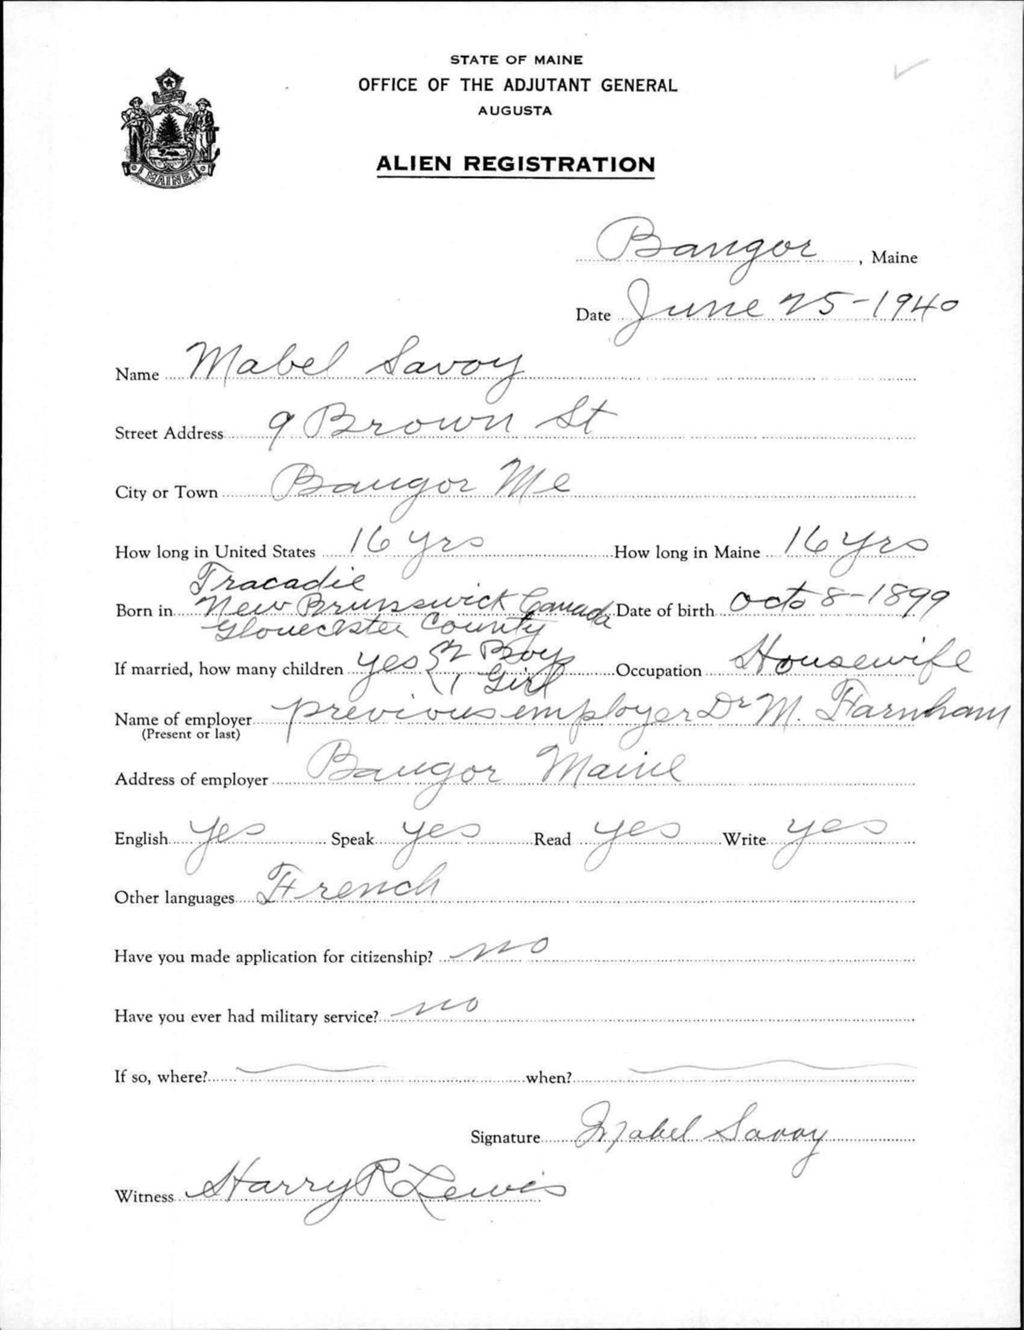 STATE OF MAINE
OFFICE OF THE ADJUTANT GENERAL
AUGUSTA
ALIEN REGISTRATION
MAINE
Bangor, Maine
Date June 25-1940
Name Mabel Savoy
Street Address 9 Brown St
City or Town Bangor Me
How long in United States 16 yrs How long in Maine 16 yrs
Tracadie
Born in New Brunswick Canada Date of birth Oct 8-1899
Gloucester County
If married, how many children yes 2 Boys Occupation Housewife
1 Girl
Name of employer previous employer Dr M. Farnham
(Present or last)
Address of employer Bangor Maine
English yes Speak yes Read yes Write yes
Other languages French
Have you made application for citizenship? no
Have you ever had military service? no
If so, where? when?
Signature Mabel Savoy
Witness Harry R Lewis